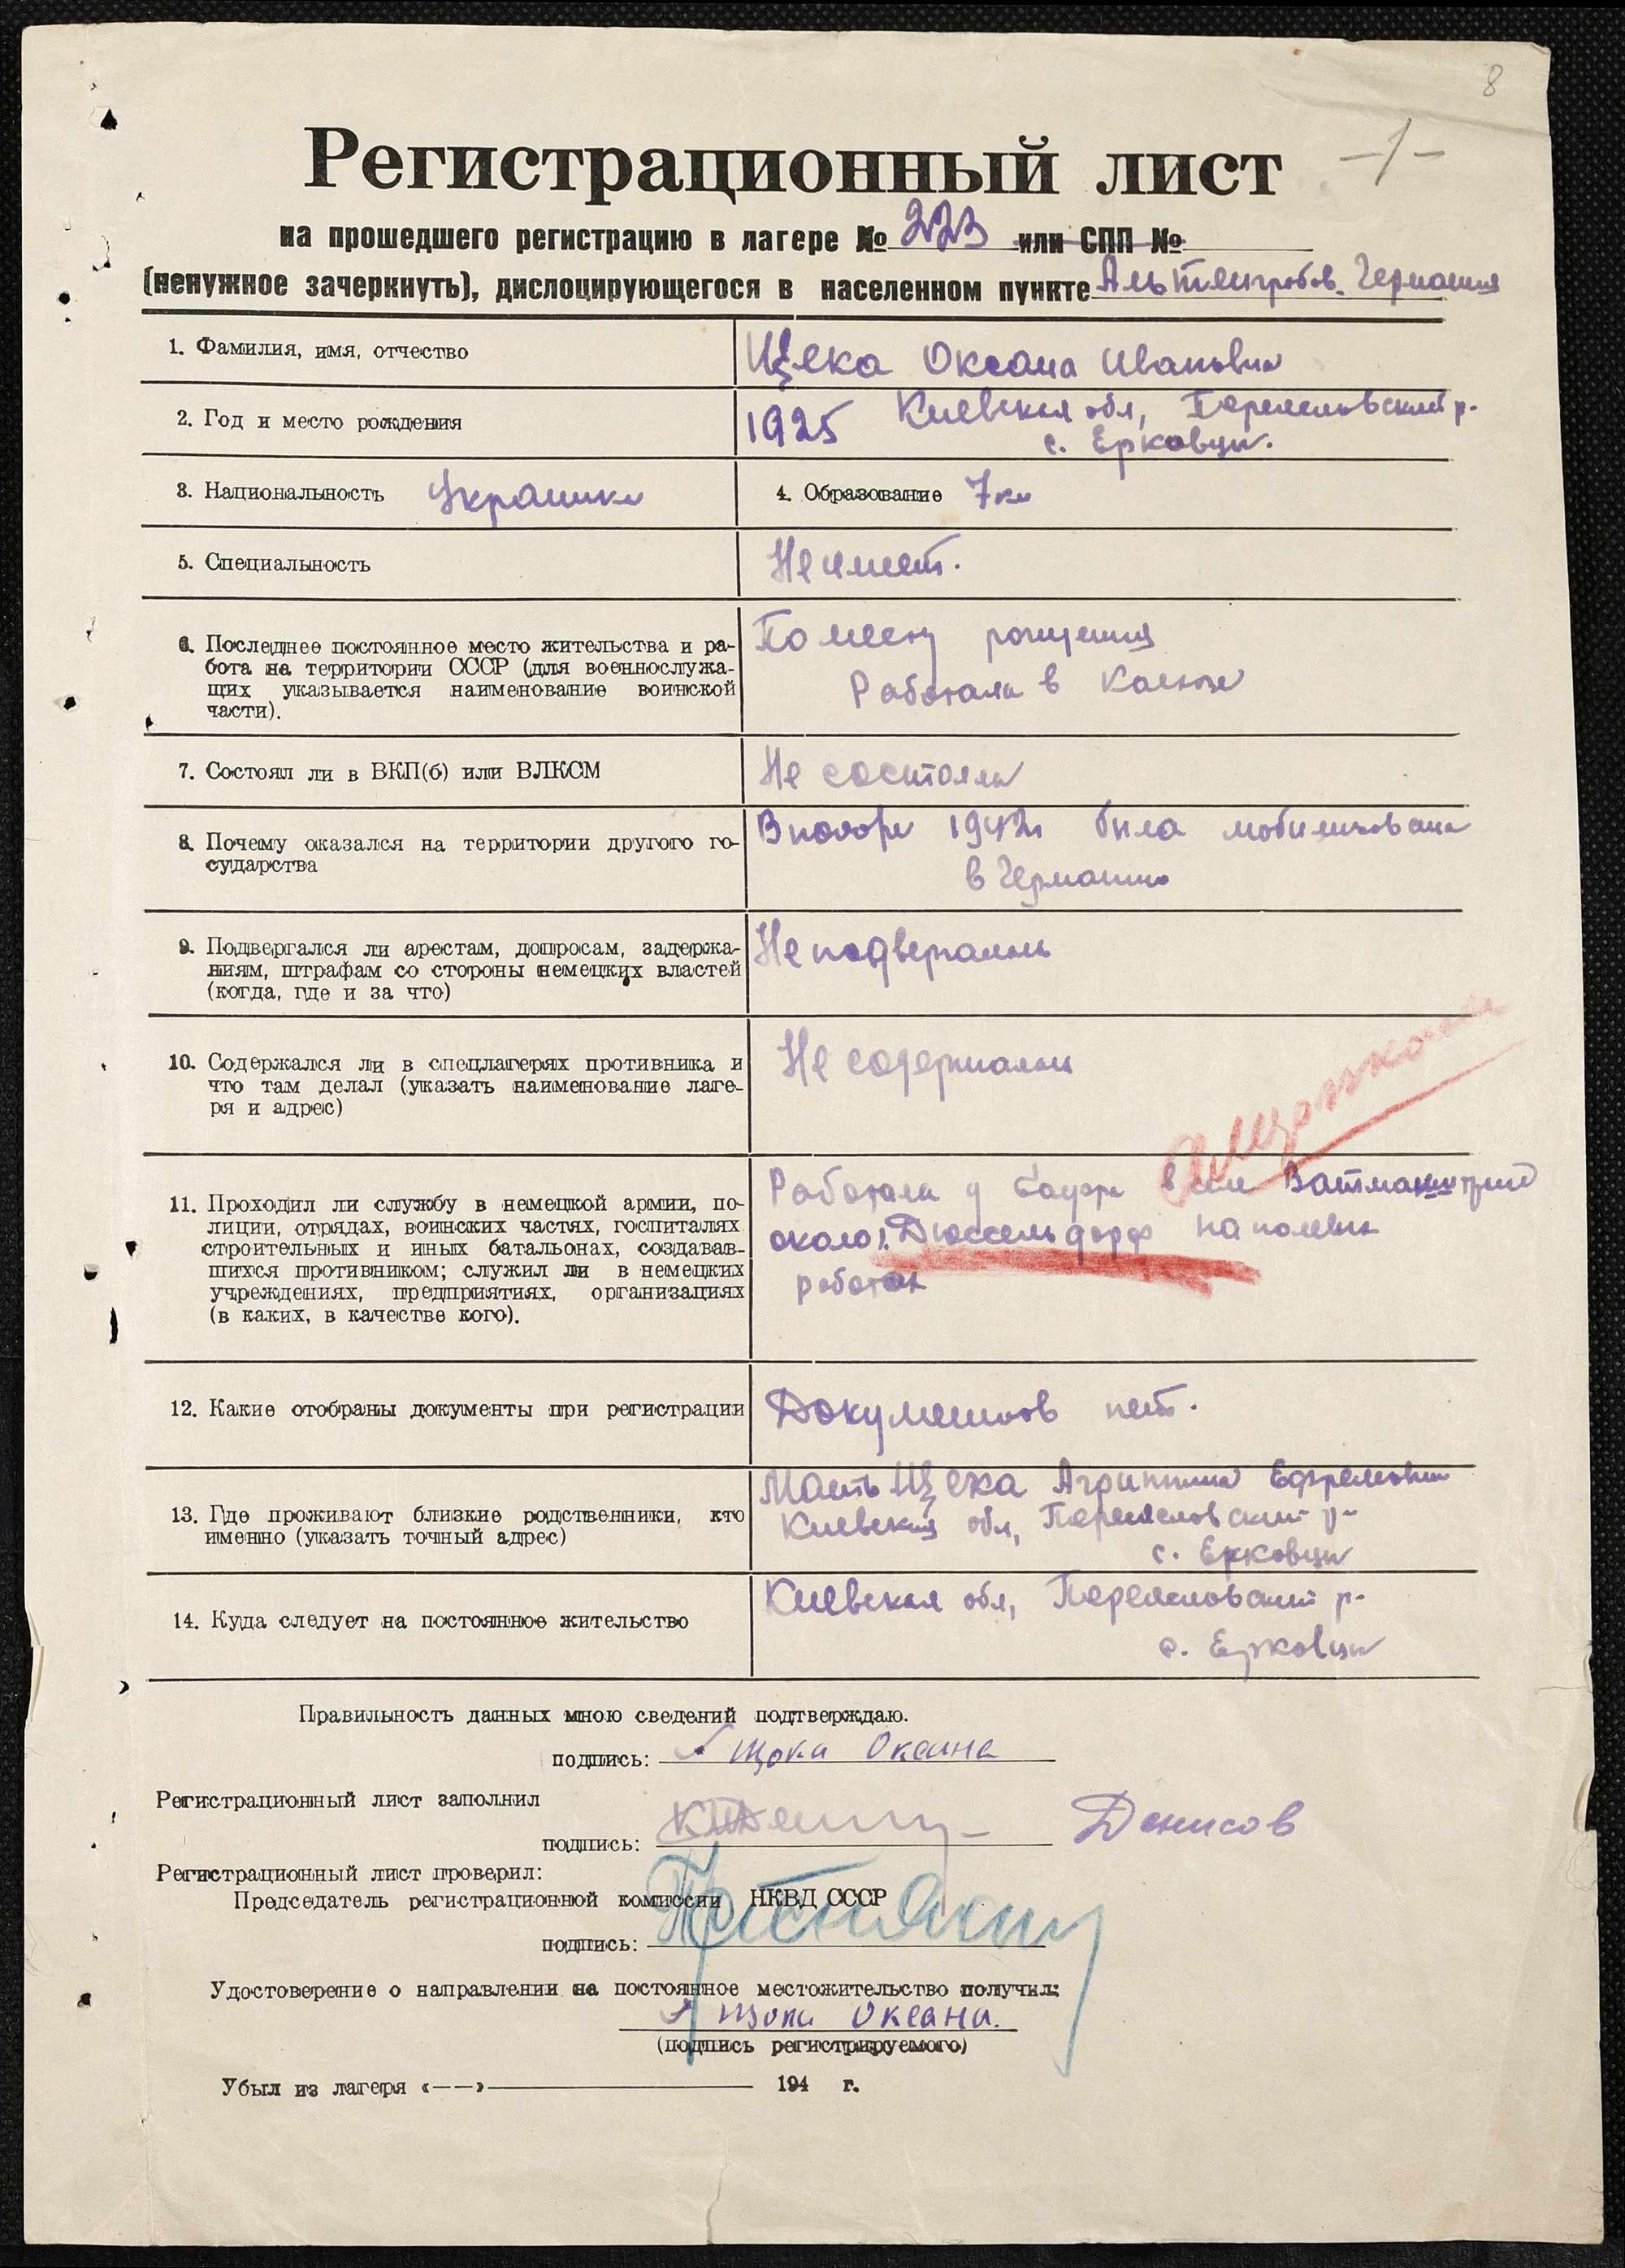 8
-1-
Регистрационный лист
на прошедшего регистрацию в лагере № 223 или СПП №
(ненужное зачеркнуть), дислоцирующегося в населенном пункте Альтенгробов. Германия
1. Фамилия, имя, отчество
Щека Оксана Ивановна
2. Год и место рождения
1925 Киевская обл, Переяславский р-
с. Ерковцы.
3. Национальность Украинка
4. Образование 7 кл
5. Специальность
Не имеет.
6. Последнее постоянное место жительства и ра-
бота на территории СССР (для военнослужа-
щих указывается наименование воинской
части).
По месту рождения
Работала в колхозе
7. Состоял ли в ВКП(б) или ВЛКСМ
Не состояла
8. Почему оказался на территории другого го-
сударства
В ноябре 1942г была мобилизована
в Германию
9. Подвергался ли арестам, допросам, задержа-
ниям, штрафам со стороны немецких властей
(когда, где и за что)
Не подвергалась
10. Содержался ли в спецлагерях противника и
что там делал (указать наименование лаге-
ря и адрес)
Не содержалась
11. Проходил ли службу в немецкой армии, по-
лиции, отрядах, воинских частях, госпиталях
строительных и иных батальонах, создавав-
шихся противником; служил ли в немецких
учреждениях, предприятиях, организациях
(в каких, в качестве кого).
Работала у бауэра в
около г. Дюссельдорф на полевых
работах
12. Какие отобраны документы при регистрации
Документов нет.
13. Где проживают близкие родственники, кто
именно (указать точный адрес)
Мать Щека Агрипина Ефремовна
Киевская обл, Переяславский р-
с. Ерковцы
14. Куда следует на постоянное жительство
Киевская обл, Переяславский р-
с. Ерковцы
Правильность данных мною сведений подтверждаю.
подпись: Щока Оксана
Регистрационный лист заполнил
подпись: Денисов
Регистрационный лист проверил:
Председатель регистрационной комиссии НКВД СССР
подпись:
Удостоверение о направлении на постоянное местожительство получил:
Щока Оксана.
(подпись регистрируемого)
Убыл из лагеря «——» 194 г.